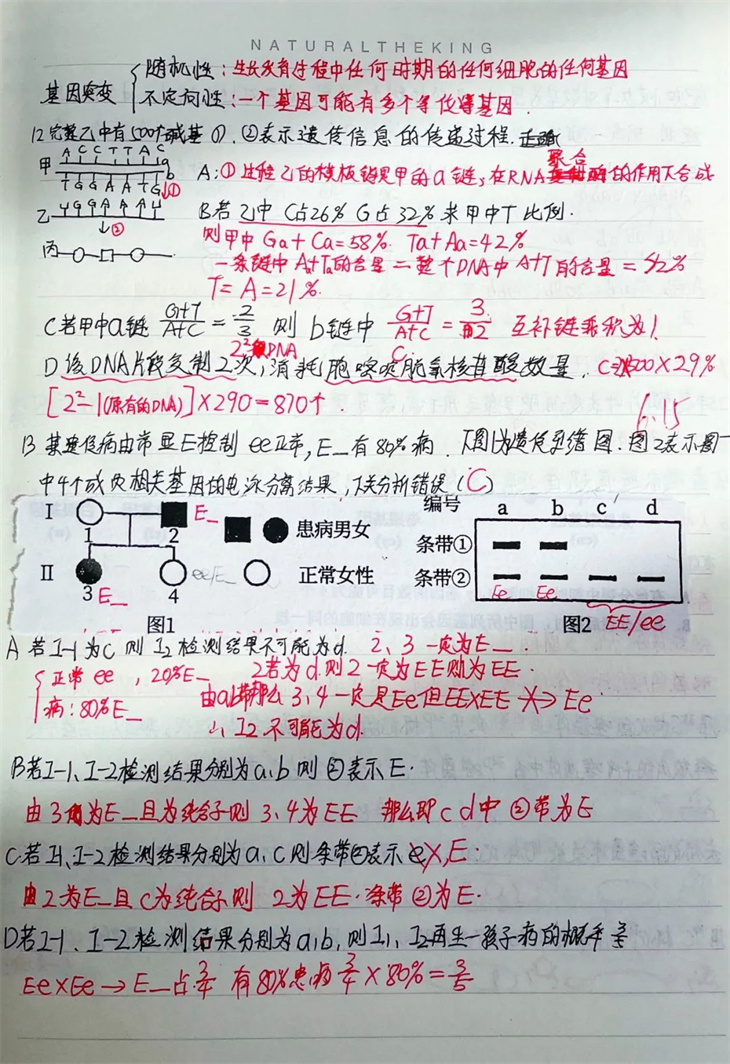 NATURALTHEKING
基因突变 { 随机性：生长发育过程中任何时期的任何细胞的任何基因
不定向性：一个基因可能有多个等位基因.
12 完整乙中有500个碱基 ①、②表示遗传信息的传递过程. 正确
甲 A C C T T A C a
b
T G G A A T G ①
A：①过程乙的模板链是甲的a链，在RNA聚合酶的作用下合成
乙 U G G A A U ②
B若乙中 C占26% G占32% 求甲中T比例.
丙
则甲中 Ga+Ca=58% Ta+Aa=42%
一条链中 A+Ta的含量=整个DNA中A+T的含量=42%
T=A=21%.
C若甲中a链 G+T/A+C = 2/3 则 b链中 G+T/A+C = 3/2 互补链乘积为1.
2²个DNA C
D 该DNA片段复制2次，消耗胞嘧啶脱氧核苷酸数量. C=1000×29%
[2²-1(原有的DNA)]×290=870个.
6.15
13 某遗传病由常显E控制 ee正常，E_有80%病. 下图1为遗传系谱图. 图2表示图一
中4个成员相关基因的电泳分离结果，下关分析错误(C)
I 1 2 E_ 患病男女
II 3 E_ 4 ee/E_ 正常女性
图1
编号 a b c d
条带①
条带②
Ee Ee EE/ee
图2
A 若I-1为c 则 I2 检测结果不可能为d. 2、3一定为E_.
{ 正常 ee，20%E_
病：80%E_
2若为d.则2一定为EE则为EE.
由ab带那么3、4一定是Ee但EE×EE ✕→ Ee.
∴ I2不可能为d.
B若I-1、I-2检测结果分别为a.b 则②表示E.
由3为E_且为纯合子则 3.4为EE 那么即c d中②带为E
C.若I1、I-2检测结果分别为a、c则条带②表示e✕，E.
由2为E_且c为纯合子则 2为EE.条带②为E.
D若I-1、I-2检测结果分别为a，b，则I1、I2再生一孩子病的概率 3/5
Ee×Ee→E_占3/4 有80%患病 3/4×80%=3/5